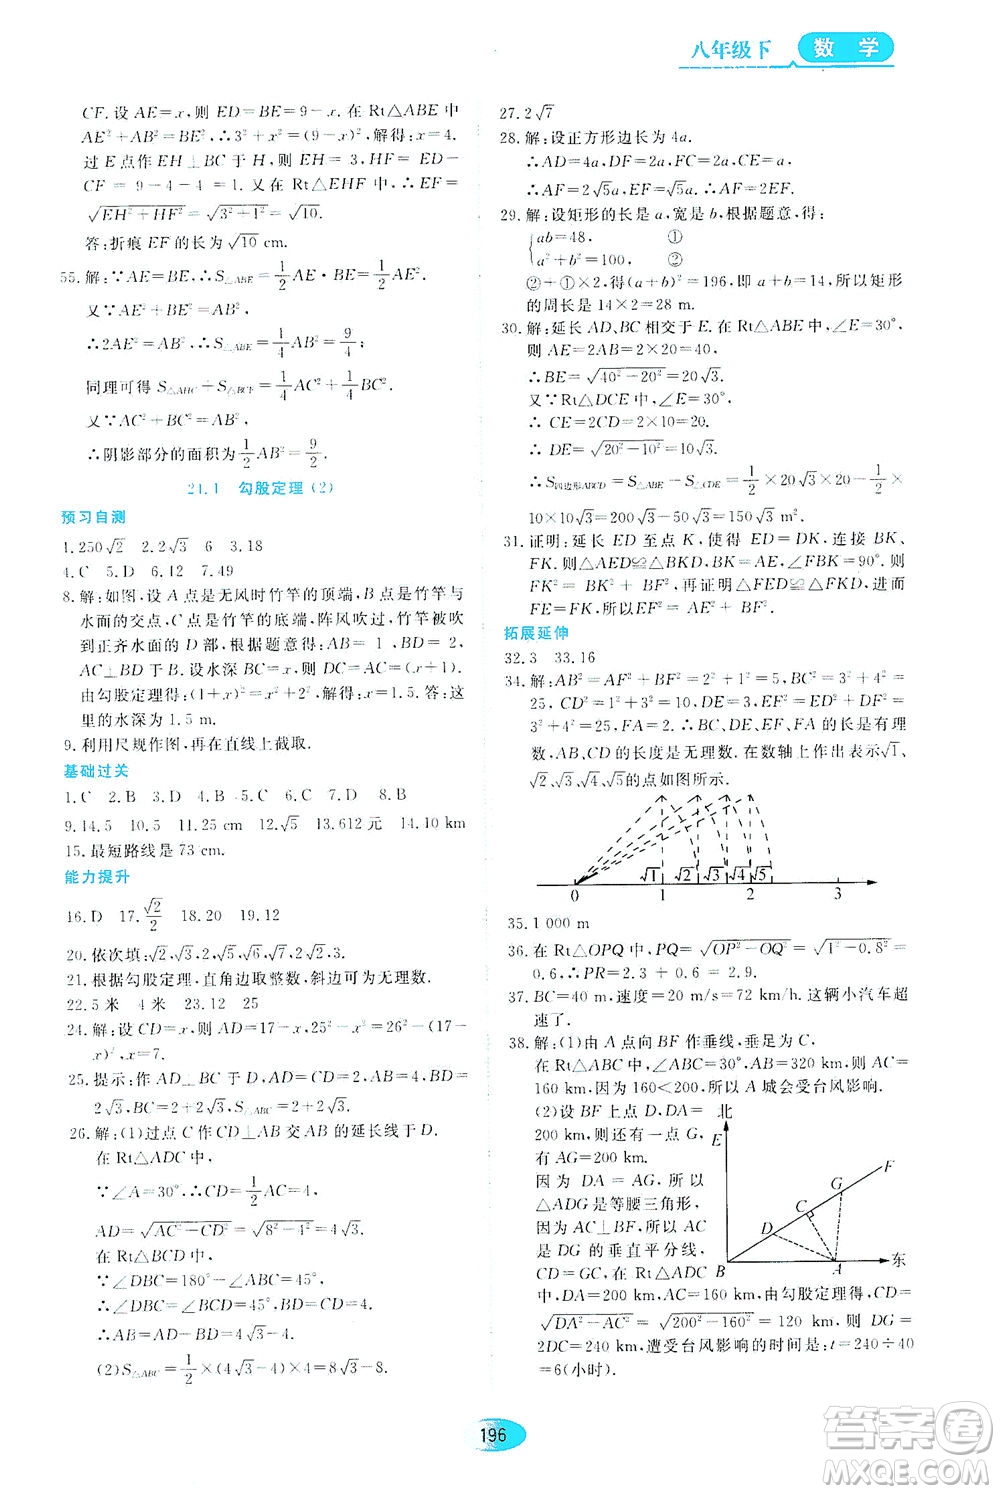 八年级下 数 学
CF. 设 AE=x, 则 ED=BE=9-x. 在 Rt△ABE 中
AE²+AB²=BE², ∴3²+x²=(9-x)², 解得: x=4.
过 E 点作 EH⊥BC 于 H, 则 EH=3, HF=BC-BH-
CF=9-4-4=1. 又在 Rt△EHF 中, ∴EF=
√(EH²+HF²)=√(3²+1²)=√10.
答:折痕 EF 的长为√10 cm.
55. 解:∵AE=BE, ∴S△ABE=1/2 AE·BE=1/2 AE².
又∵AE²+BE²=AB²,
∴2AE²=AB², ∴S△ABE=1/4 AB²=9/4;
同理可得 S△AHC+S△BCF=1/4 AC²+1/4 BC².
又∵AC²+BC²=AB²,
∴阴影部分的面积=1/2 AB²=9/2.
21.1 勾股定理(2)
预习自测
1.250√2 2.2√3 6 3.18
4.C 5.D 6.12 7.49
8. 解:如图,设 A 点是无风时竹竿的顶端,B 点是竹竿与
水面的交点,C 点是竹竿的底端,阵风吹过,竹竿被吹
到正齐水面的 D 部,根据题意得:AB=1,BD=2,
AC⊥BD 于 B. 设水深 BC=x, 则 CD=AC=1+x.
由勾股定理得:(1+x)²=x²+2², 解得:x=1.5. 答:这
里的水深为 1.5 m.
9. 利用尺规作图,再在直线上截取.
基础过关
1.C 2.B 3.D 4.B 5.C 6.C 7.D 8.B
9.14.5 10.5 11.25 cm 12.√5 13.612元 14.10 km
15. 最短路线是 73 cm.
能力提升
16.D 17.√2/2 18.20 19.12
20. 依次填:√2,√3,√2,√5,√3,√2.
21. 根据勾股定理,直角边取整数,斜边可为无理数.
22.5 米 4 米 23.12 25
24. 解:设 CD=x, 则 AD=17-x, 25²-x²=26²-(17-
x)², x=7.
25. 提示:作 AD⊥BC 于 D, 则 AD=2, BD=2, CD=
2√3, BC=2+2√3, S△ABC=2(√3+1)
26. 解:(1)过点 C 作 CD⊥AB 交 AB 的延长线于 D.
在 Rt△ADC 中,
∵∠A=30°, ∴CD=1/2 AC=4.
AD=√(AC²-CD²)=√(8²-4²)=4√3.
在 Rt△BCD 中,
∵∠DBC=180°-∠ABC=45°,
∴∠DCB=∠DBC=45°, ∴BD=CD=4.
∴AB=AD-BD=4√3-4.
(2)S△ABC=1/2×(4√3-4)×4=8√3-8.
27.2√7
28. 解:设正方形边长为 4a.
∴AD=4a, DF=2a, FC=2a, EC=a.
∴AF=2√5a, EF=√5a. ∴AF=2EF.
29. 解:设矩形的长是 a, 宽是 b, 根据题意,得:
ab=48, ①
a²+b²=100, ②
②+①×2, 得(a+b)²=196, a+b=14, 所以矩形
的周长是 14×2=28 m.
30. 解:延长 AD,BC 相交于 E. 在 Rt△ABE 中,∠E=30°,
则 AE=2AB=2×20=40.
∴BE=√(40²-20²)=20√3.
又∵Rt△DCE 中,∠E=30°,
∴CE=2CD=2×10=20.
∴DE=√(20²-10²)=10√3.
∴S四边形ABCD=S△ABE-S△CDE=1/2×20×20√3-1/2×
10×10√3=200√3-50√3=150√3 m².
31. 证明:延长 ED 至点 K, 使得 ED=DK, 连接 BK,
FK. ∴△AED≌△BKD, AE=BK, ∠FBK=90°. 则
FK²=BK²+BF², 再证明△FED≌△FKD, 进而
FE=FK, 所以 EF²=AE²+BF².
拓展延伸
32.3 33.16
34. 解:AB²=AF²+BF²=2²+2²=8, BC²=3²+4²=
25, CD²=1²+3²=10, DE=2, EF²=DE²+DF²=
3²+4²=25, FA=2. ∴BC,DE,EF,FA 的长是有理
数,AB,CD 的长度是无理数. 在数轴上作出表示√1,
√2,√3,√4,√5的点如图所示.
√1 √2 √3 √4 √5
0 1 2 3
35.1 000 m
36. 在 Rt△OPQ 中,PQ=√(OP²-OQ²)=√(1²-0.8²)=
0.6, ∴PR=2.3+0.6=2.9.
37. BC=40 m, 速度=20 m/s=72 km/h. 这辆小汽车超
速了.
38. 解:(1)由 A 点向 BF 作垂线,垂足为 C.
在 Rt△ABC 中,∠ABC=30°, AB=320, 则 AC=
160 km, 因为 160<200, 所以 A 城会受台风影响.
(2)设 BF 上点 D, DA=
200 km, 则还有一点 G,
有 AG=200 km.
因为 DA=AG, 所以
△ADG 是等腰三角形,
因为 AC⊥BF, 所以 AC
是 DG 的垂直平分线,
CD=GC, 在 Rt△ADC
中,DA=200 km, AC=160 km, 由勾股定理得,CD=
√(DA²-AC²)=√(200²-160²)=120 km, 则 DG=
2DC=240 km, 遭受台风影响的时间是:t=240÷40
=6(小时).
北 E F G C D B A 东
196
答案圈
MXQE.COM